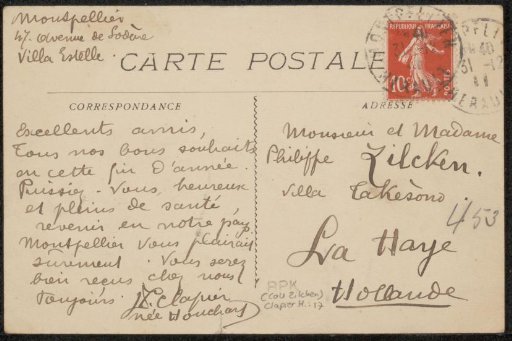 Montpellier
47. Avenue de Lodève
Villa Estelle.
CARTE POSTALE
RÉPUBLIQUE FRANÇAISE
10
MONTPELLIER
HERAULT
31 -12
11
CORRESPONDANCE
ADRESSE
Excellents amis,
Tous nos bons souhaits
en cette fin d'année.
Puissiez-vous heureux
et pleins de santé
revenir en notre pays
Montpellier vous plairait
sûrement. Vous serez
bien reçus chez nous
toujours.
Clapier
née Houchart
Monsieur et Madame
Philippe Zilcken.
Villa Hakésono
453
La Haye
Hollande
RPK
(Coll Zilcken)
Clapier H.: 17